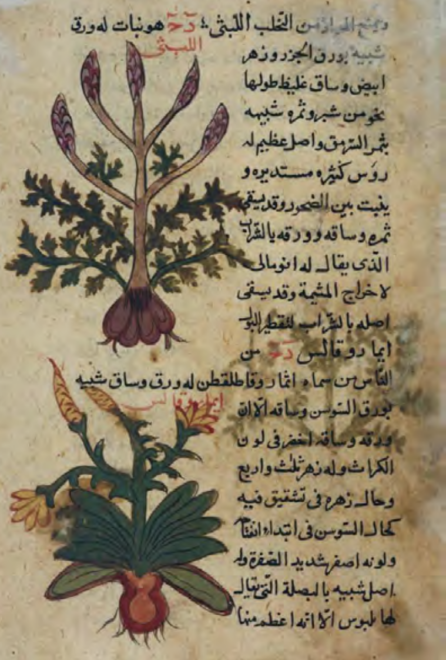 ويمنع المرار من التحلب اللبثي دخ هو نبات له ورق
اللبثي
شبيه بورق الجزر وزهر
ابيض وساق غليظ طولها
نحو من شبر وثمره شبيه
بثمر السرمق واصل عظيم له
رؤس كثيره مستديره و
ينبت بين الصخور وقد يسقى
ثمره وساقه وورقه بالشراب
الذى يقال له انومالى
لاخراج المشيمة وقد يسقى
اصله بالشراب لتقطير البول
ايما روقالس دخ من
الناس من سماه اثما روقاطلقطن له ورق وساق شبيه
ايما روقالس
بورق السوسن وساقه الا ان
ورقه وساقه اخضر فى لون
الكراث وله زهر ثلث واربع
وحال زهره فى تشقيق فيه
كحال السوسن فى ابتداء انفتاح
ولونه اصفر شديد الصفرة وله
اصل شبيه بالبصلة التى يقال
لها بلبوس الا انه اعظم منها